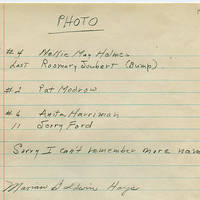 PHOTO
#4 Nellie May Holmes
Last Rosemary Joubert (Bump)
#2 Pat Modrow
#6 Anita Harriman
11 Jerry Ford
Sorry I can't remember more nam
Marian B Hays